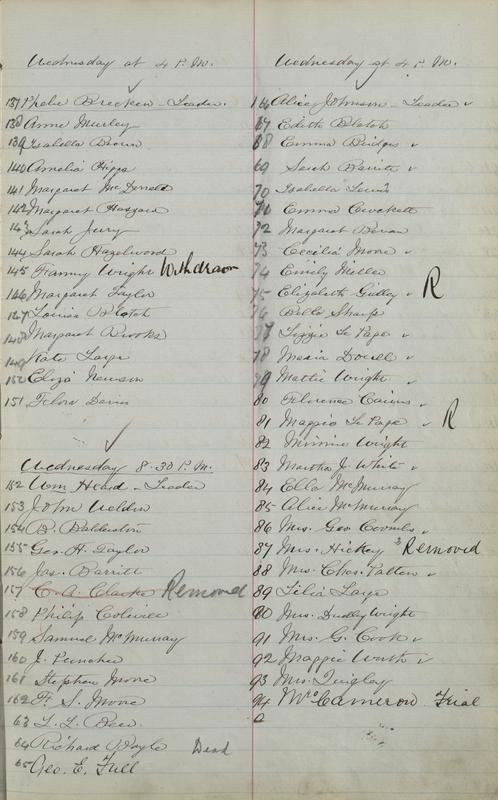 Wednesday at 4 P.M.
137 Phebe Brecken - Leader
138 Anne Murley
139 Isabella Brown
140 Amelia Higgs
141 Margaret McDonald
142 Margaret Haszard
143 Sarah Jury
144 Sarah Hazelwood
145 Fanny Wright Withdrawn
146 Margaret Taylor
147 Louisa Blatch
148 Margaret Brooks
149 Kate Large
150 Eliza Newson
151 Flora Davis
Wednesday 8.30 P.M.
152 Wm Heard - Leader
153 John Weldon
154 D. Balderston
155 Geo. H. Taylor
156 Jas. Barritt
157 C. A. Clarke Removed
158 Philip
159 Samuel McMurray
160 J.
161 Stephen Moore
162 F. S. Moore
63 L. L. Beer
64 Richard Dead
65 Geo. E. Full
Wednesday at 4 P.M.
166 Alice Johnson - Leader
67 Edith Blatch
68 Emma Bridges
69 Sarah Barritt
70 Isabella Louis
71 Emma Crockett
72 Margaret Bevan
73 Cecilia Moore
74 Emily Mellea
75 Elizabeth Gulley R
76 Bella Sharp
77 Lizzie Le Page
78 Maria Dowell
79 Mattie Wright
80 Florence Cairns
81 Maggie Le Page R
82 Minnie Wright
83 Martha J. White
84 Ella McMurray
85 Alice McMurray
86 Mrs. Geo Coombs
87 Mrs. Hickey Removed
88 Mrs. Chas. Patton
89 Lilia Large
90 Mrs. Dudley Wright
91 Mrs. G. Cook
92 Maggie Worth
93 Mrs. Quigley
94 Mrs Cameron Trial